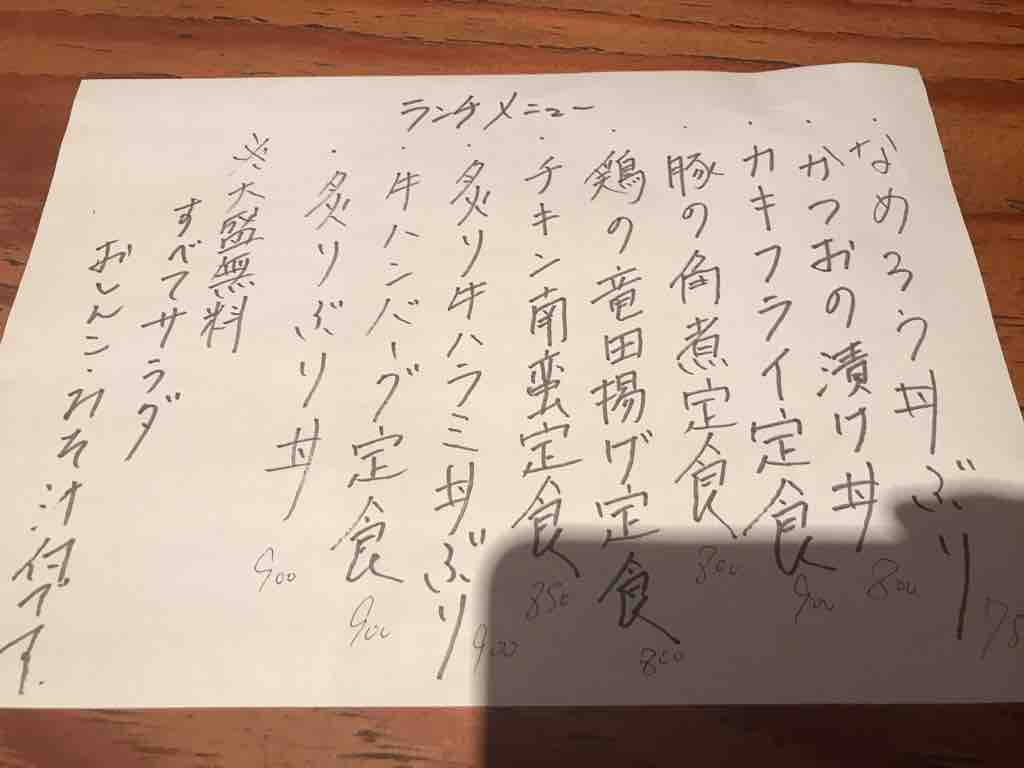 ランチメニュー
・なめろう丼ぶり
・かつおの漬け丼 800
・カキフライ定食 900
・豚の角煮定食 800
・鶏の竜田揚げ定食 800
・チキン南蛮定食 850
・炙り牛ハラミ丼ぶり 900
・牛ハンバーグ定食 900
・炙りぶり丼 900
※大盛無料
すべてサラダ
・おしんこ・みそ汁付です。